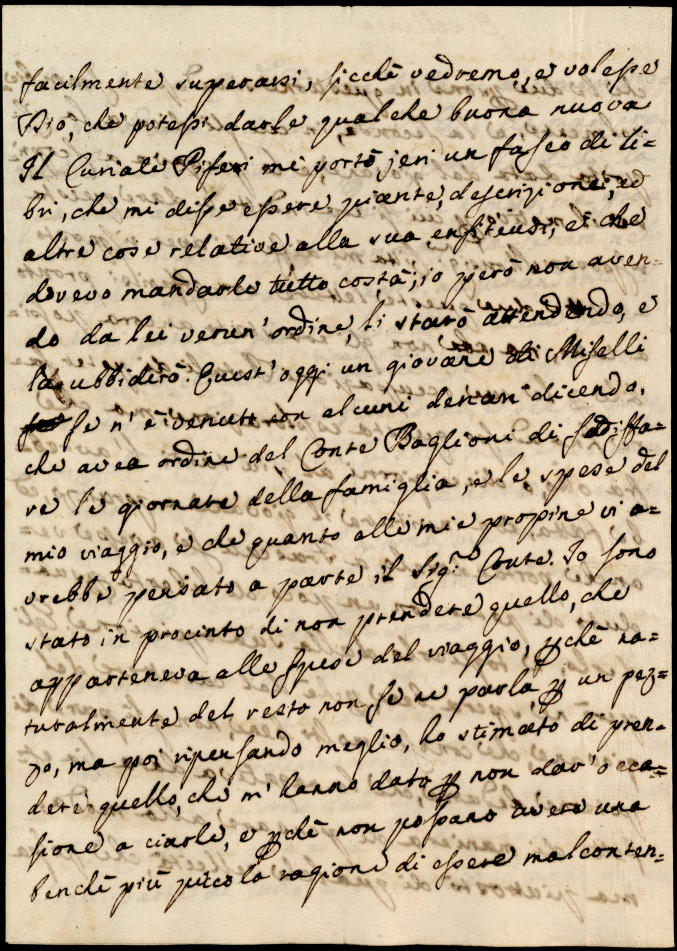 facilmente superarsi, sicchè vedremo, e volesse
Dio, che potessi darle qualche buona nuova
Il Curiale Piferi mi portò jeri un fascio di li=
bri, che mi disse essere piante, descrizioni, ed
altre cose relative alla sua enfiteusi, e che
dovevo mandarle tutto costà; io però non aven=
do da lei verun' ordine, li starò attendendo, e
la ubbidirò. Quest' oggi un giovane di Miselli
se n' è venuto con alcuni denari dicendo,
che avea ordine del Conte Baglioni di sodisfa=
re le giornate della famiglia, e le spese del
mio viaggio, e che quanto alle mie propine vi a=
vrebbe pensato a parte il Sig.r Conte. Io sono
stato in procinto di non prendere quello, che
apparteneva alle spese del viaggio, pchè na=
turalmente del resto non se ne parla p un pez=
zo, ma poi ripensando meglio, ho stimato di pren=
dere quello, che m' hanno dato p non dar' occa=
sione a ciarle, e pchè non possano avere una
benchè più piccola ragione di essere malconten=